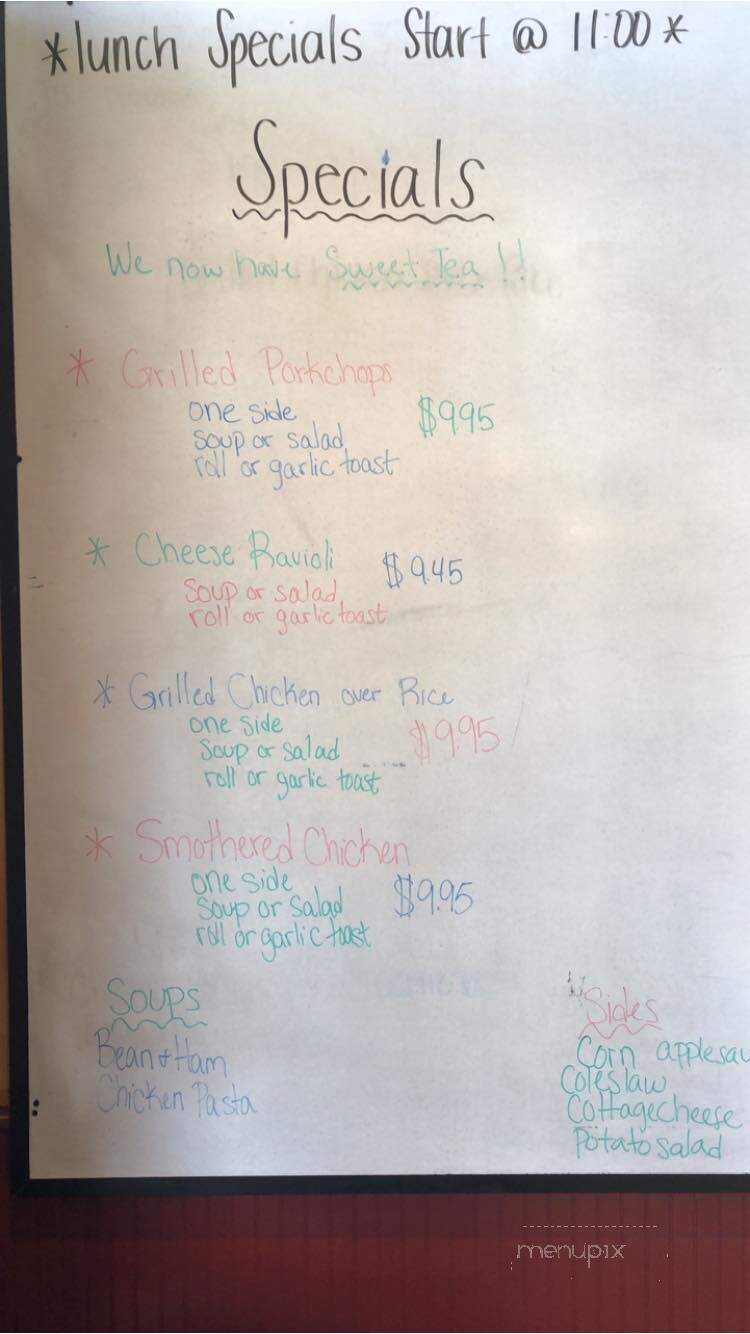 *lunch Specials Start @ 11:00*
Specials
We now have Sweet Tea!!
* Grilled Porkchops
one side
$9.95
soup or salad
roll or garlic toast
* Cheese Ravioli
$9.45
Soup or salad
roll or garlic toast
* Grilled Chicken over Rice
one side
$9.95
Soup or salad
roll or garlic toast
* Smothered Chicken
one side
$9.95
Soup or Salad
roll or garlic toast
Soups
Bean & Ham
Chicken Pasta
Sides
Corn applesau
Coleslaw
Cottagecheese
Potato salad
menupix